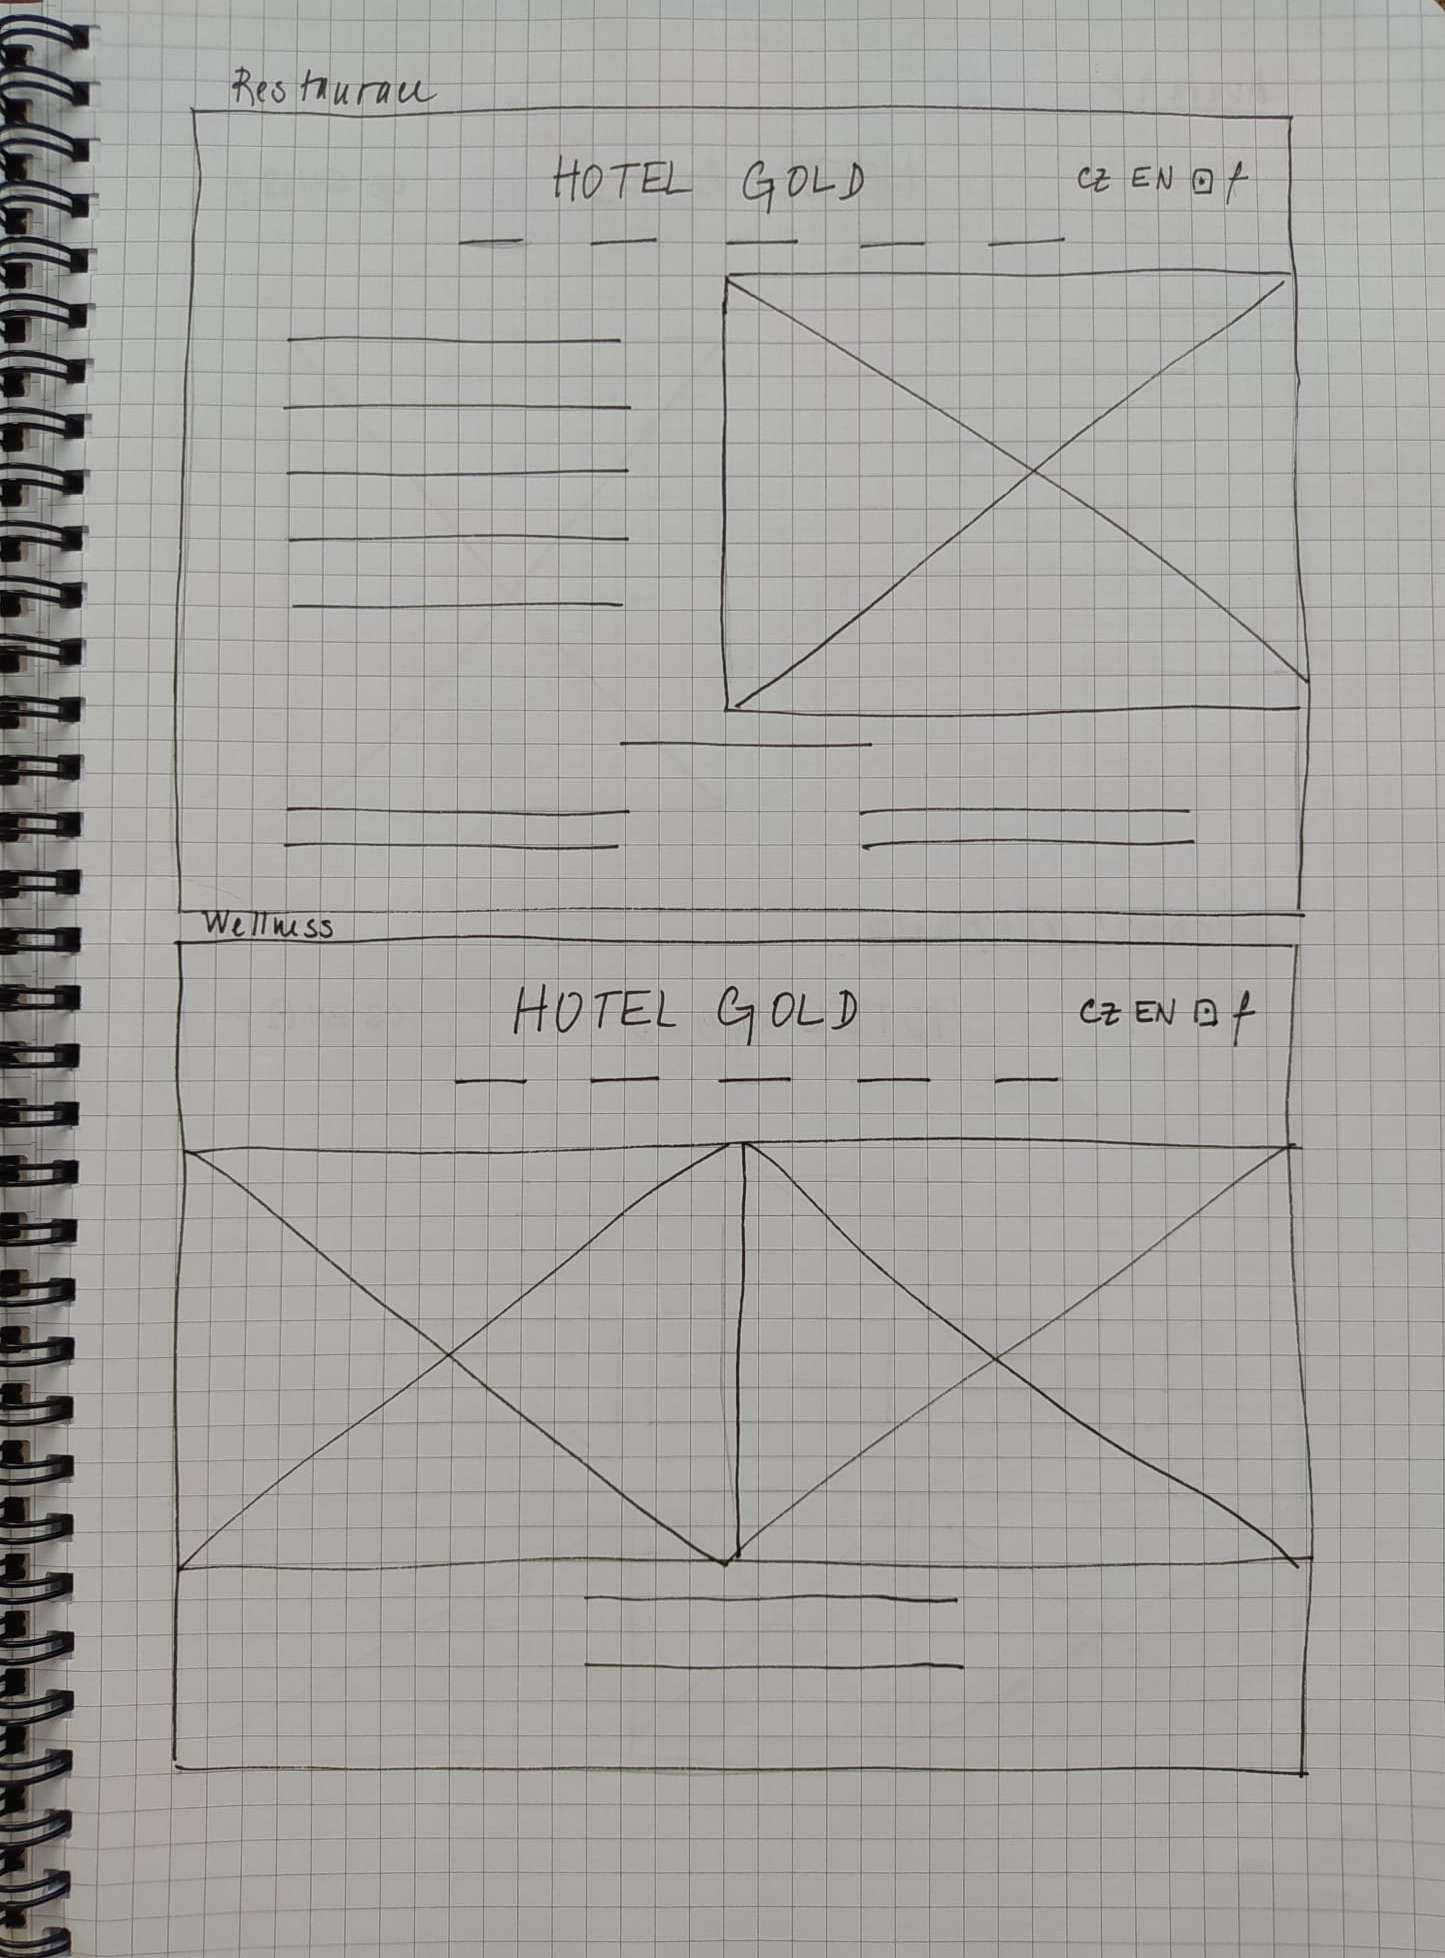 Restaurace
HOTEL GOLD CZ EN f
Wellness
HOTEL GOLD CZ EN f